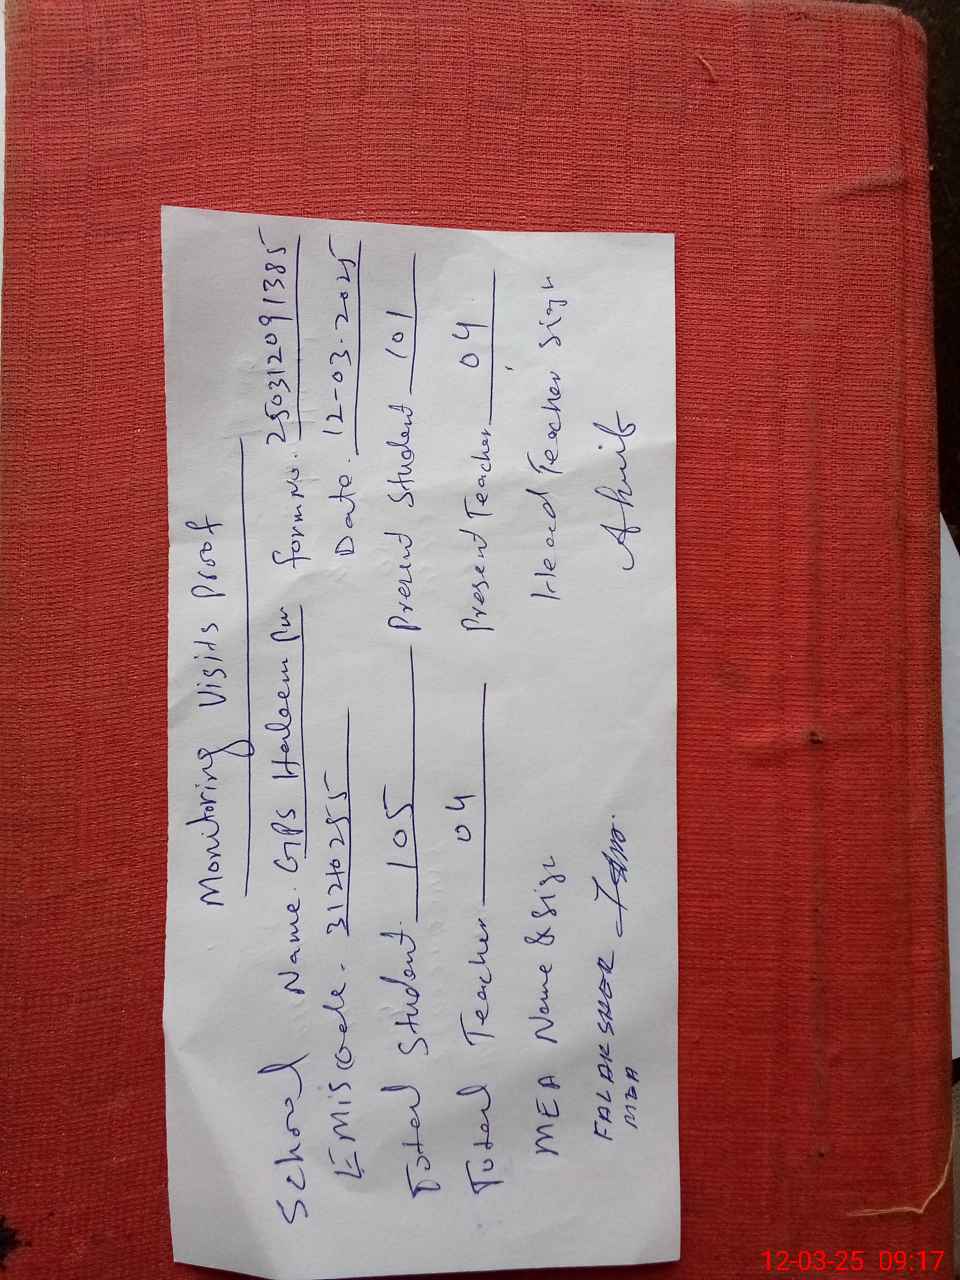 Monitoring Visits Proof
School Name. GPS Haleem Pur form No. 25031209 1385
EMIS code. 31210255 Date. 12-03-2025
Total Student. 105 Present Student 101
Total Teacher 04 Present Teacher 04
MEA Name & Sign Head Teacher Sign
FALAK SHER
MEA
12-03-25 09:17